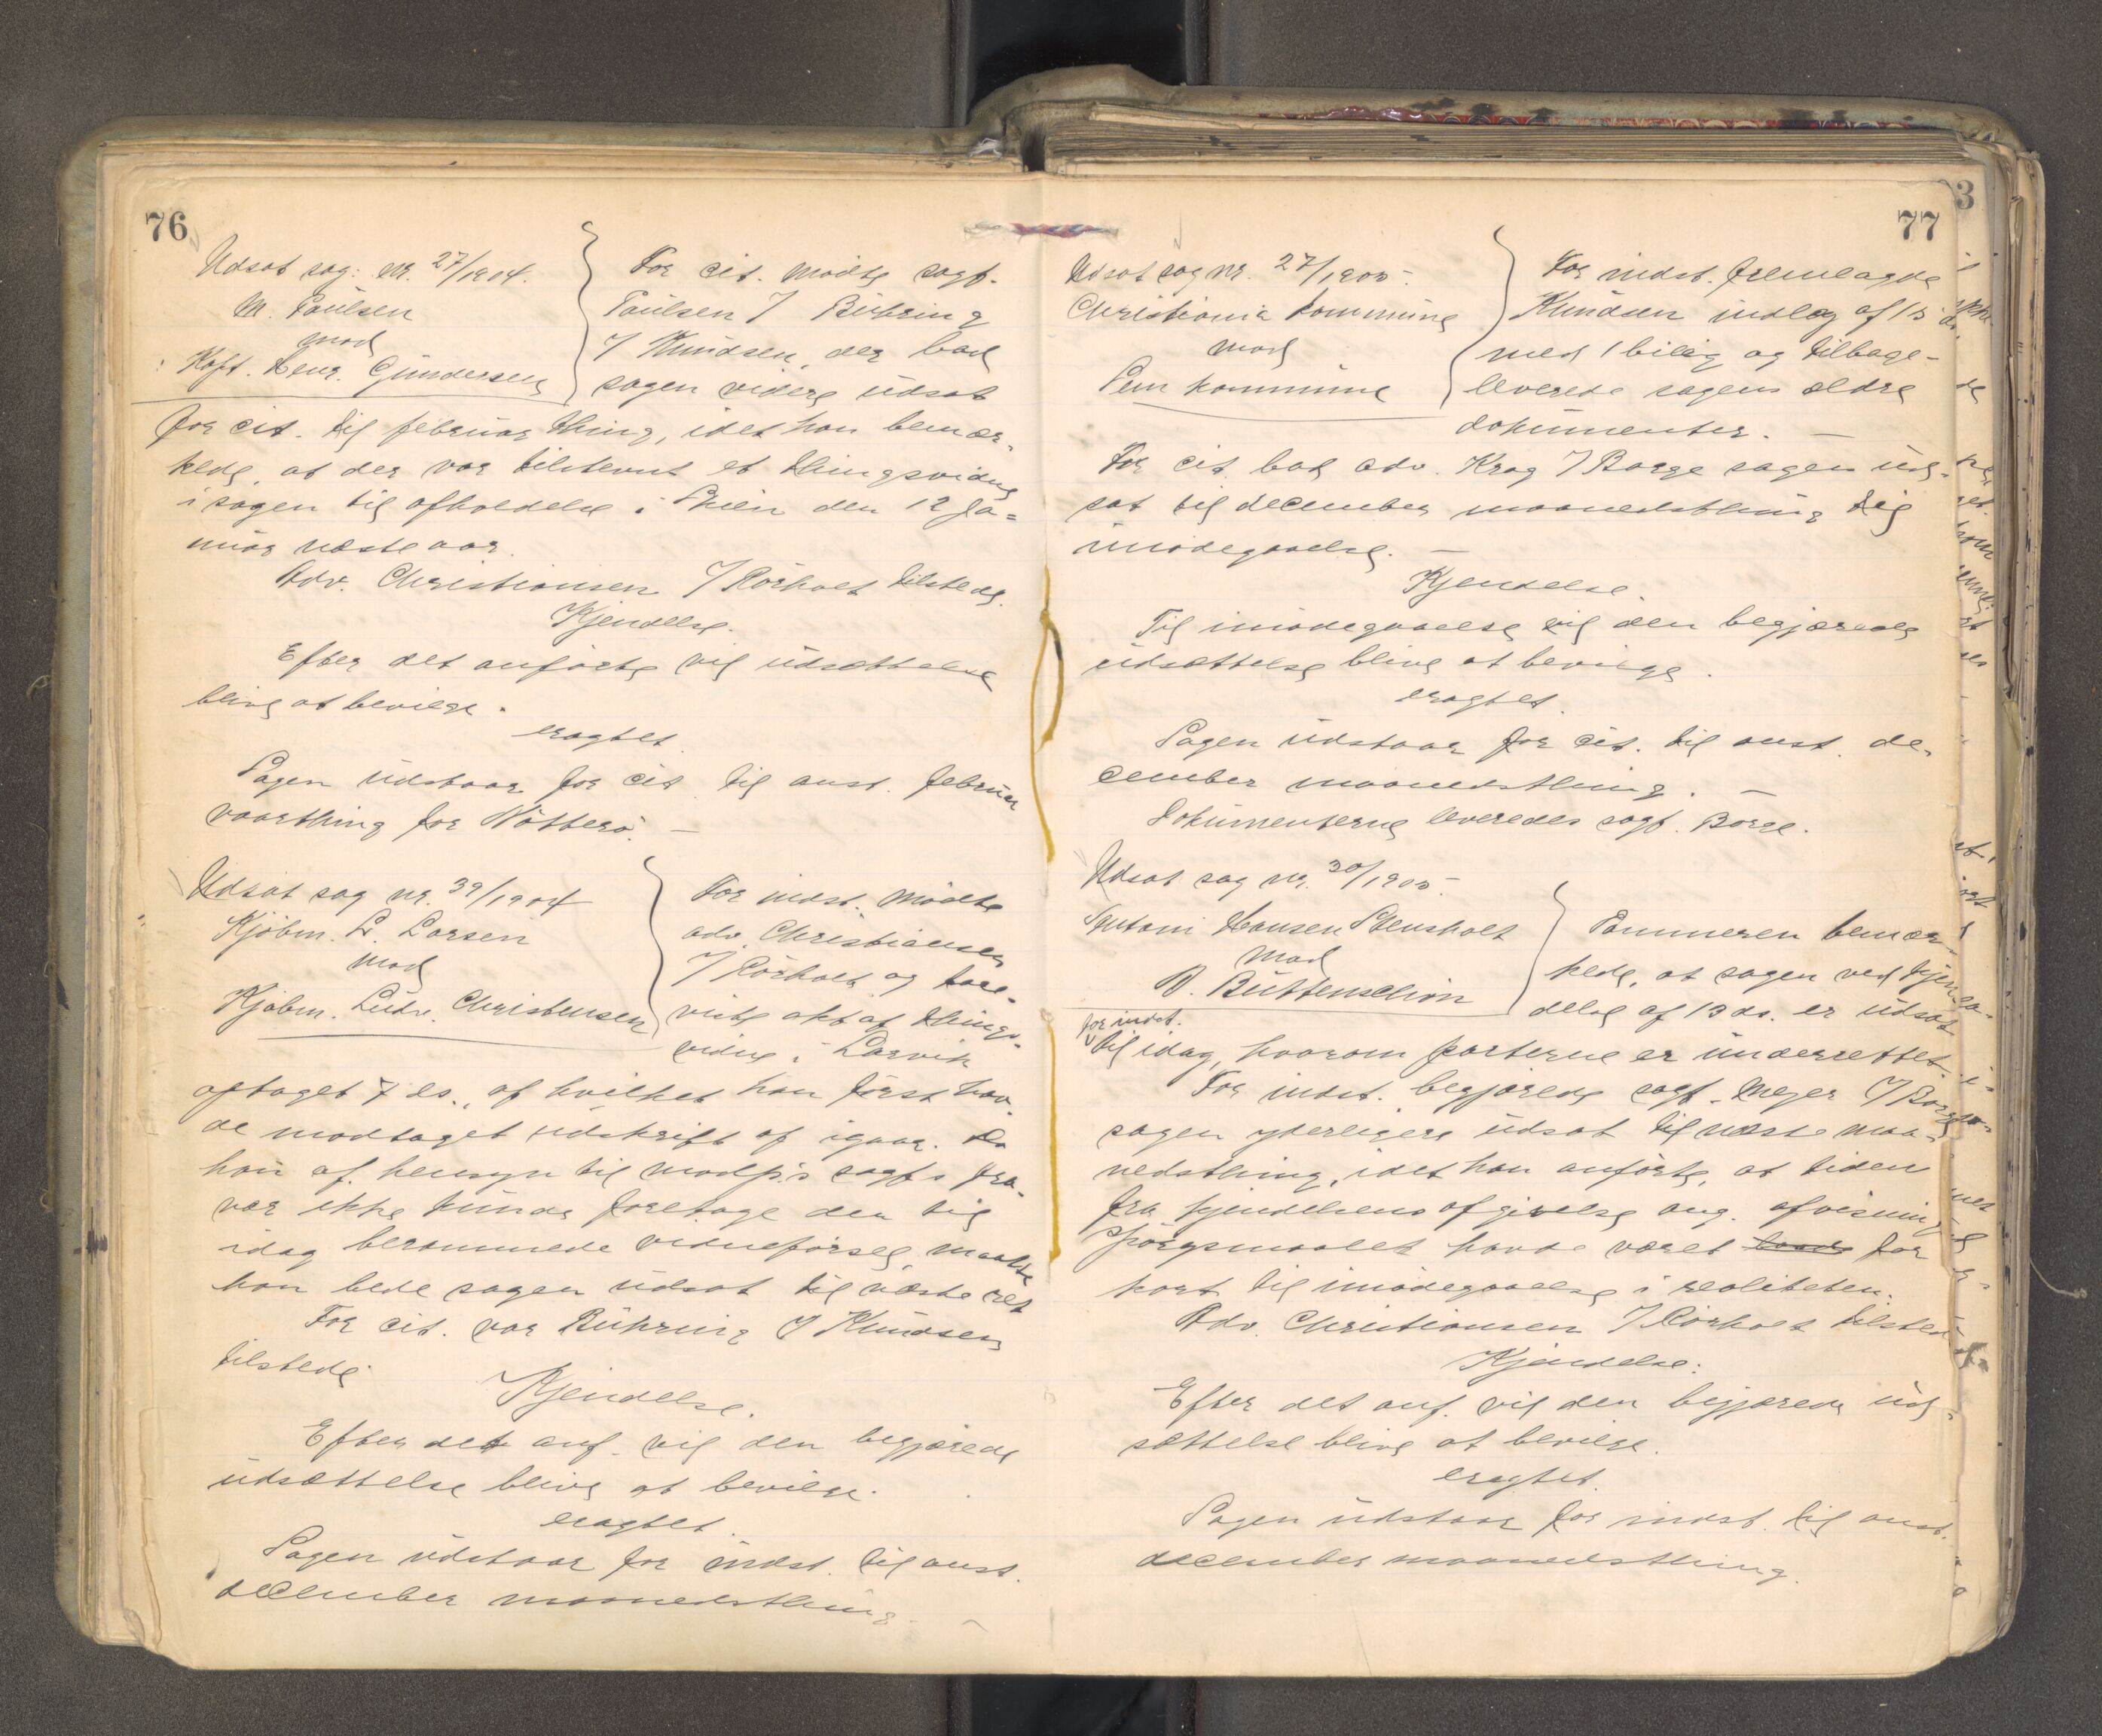 76
Udsat sag: nr. 27/1904.
M. Paulsen
mod
Kapt. Henr. Gundersen
For cit. mødte sagf.
Paulsen / Bühring
/ Knudsen, der bad
sagen videre udsat
for cit. til februar thing, idet han bemær-
kede, at der var tilstevnt et thingsvidne
i sagen til afholdelse i Skien den 12 ja=
nuar næste aar.
Adv. Christiansen / Rørholt tilstede.
Kjendelse.
Efter det anførte vil udsættelse
blive at bevilge.
eragtet.
Sagen udstaar for cit. til anst. februar
vaarthing for Nøtterø. —
Udsat sag nr. 39/1904
Kjøbm. L. Larsen
mod
Kjøbm. Ludv. Christensen
For indst. mødte
adv. Christiansen
/ Rørholt og fore-
viste akt af things-
vidne i Larvik
optaget 7 ds., af hvilket han først hav-
de modtaget udskrift af igaar. Da
han af hensyn til modp's sagfs fra-
vær ikke kunde foretage den til
idag berammede vidneførsel, maatte
han bede sagen udsat til næste ret
For cit. var Bühring / Knudsen
tilstede.
Kjendelse.
Efter det anf. vil den begjærede
udsættelse blive at bevilge.
eragtet.
Sagen udstaar for indst. til anst.
december maanedsthing. —
77
Udsat sag nr. 27/1905.
Christiania kommune
mod
Sem kommune
For indst. fremlagde
Knudsen indlæg af 13 ds.
med 1 bilag og tilbage-
leverede sagens ældre
dokumenter. —
For cit. bad adv. Krag / Borge sagen ud-
sat til december maanedsthing til
imødegaaelse. —
Kjendelse.
Til imødegaaelse vil den begjærede
udsættelse blive at bevilge.
eragtet.
Sagen udstaar for cit. til anst. de-
cember maanedsthing. —
Dokumenterne leveredes sagf. Borge.
Udsat sag nr. 30/1905.
Hansen Stensholt
mod
Dommeren bemær-
kede, at sagen ved kjen-
delse af 13 ds. er udsat
for indst.
til idag, hvorom parterne er underrettet.
For indst. begjærede sagf. Meyer / Borge
sagen yderligere udsat til næste maa-
nedsthing, idet han anførte, at tiden
fra kjendelsens afgivelse ang. afvisning
spørgsmaalet havde været for
kort til imødegaaelse i realiteten.
Adv. Christiansen / Rørholt tilstede
Kjendelse:
Efter det anf. vil den begjærede ud-
sættelse blive at bevilge.
eragtet.
Sagen udstaar for indst. til anst.
december maanedsthing.